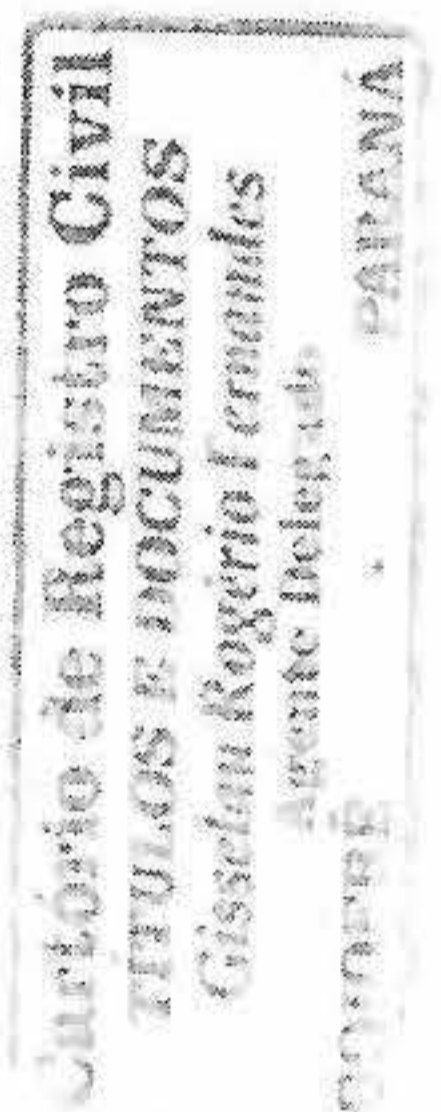 Cartório de Registro Civil
TITULOS E DOCUMENTOS
Rogério Fernandes
Agente Delegado
PARANÁ